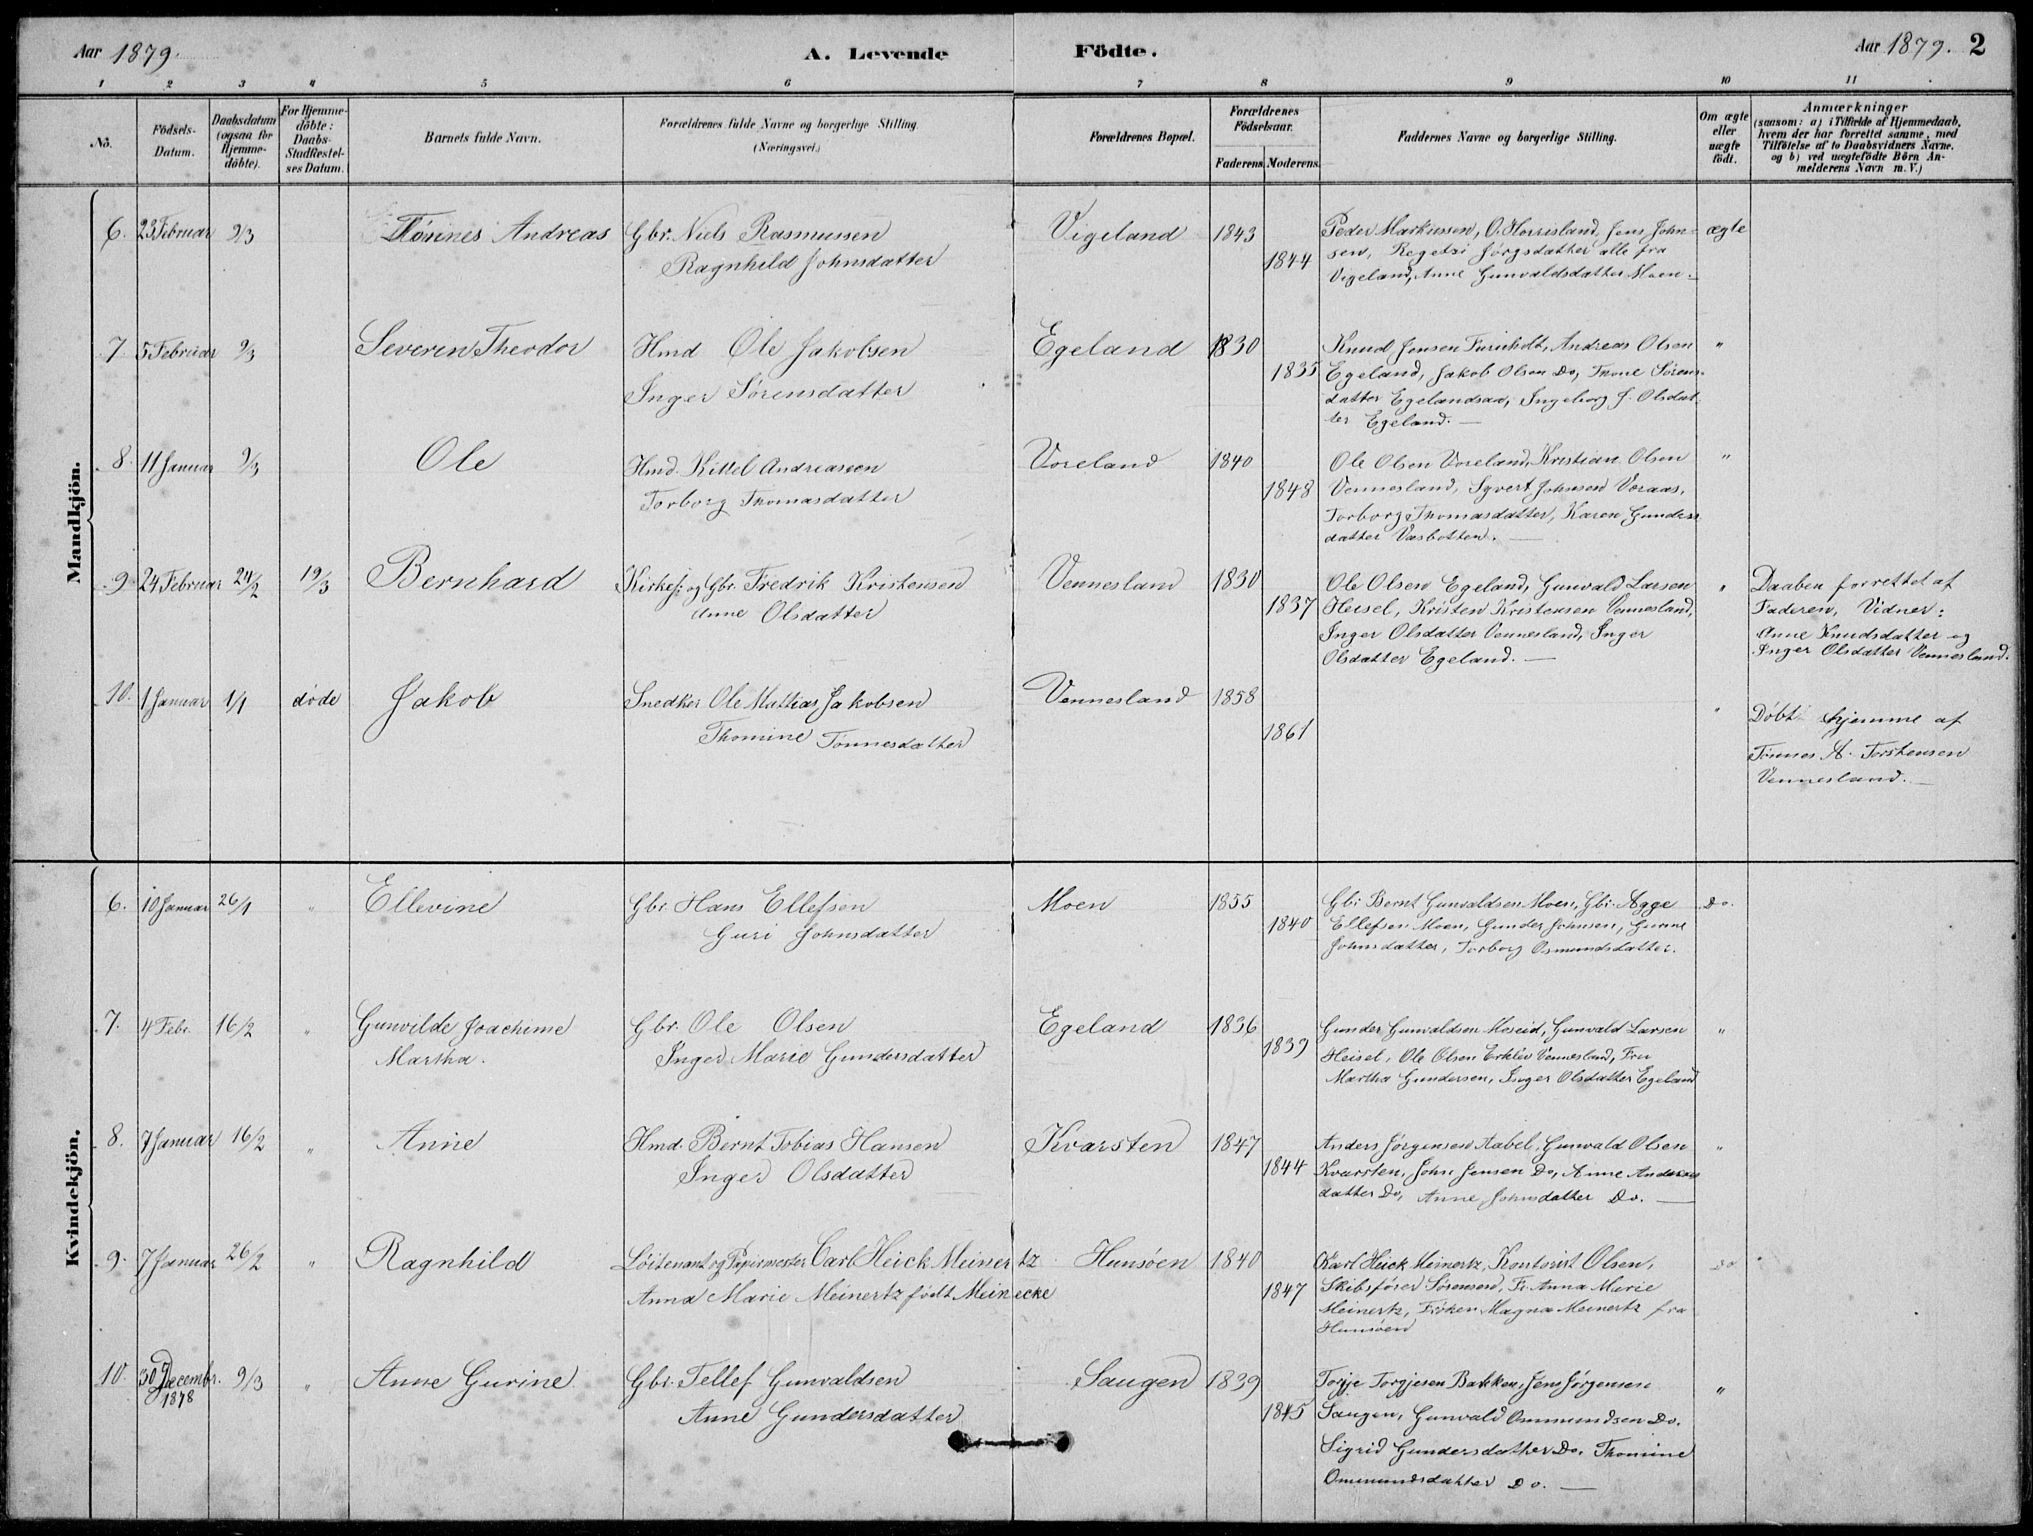 Aar 1879. A. Levende Födte. Aar 1879. 2
1 2 3 4 5 6 7 8 9 10 11
No.
Födsels-Datum.
Daabsdatum (ogsaa for Hjemmedöbte).
For Hjemmedöbte: Daabs-Stadfestelses Datum.
Barnets fulde Navn.
Forældrenes fulde Navne og borgerlige Stilling. (Næringsvei.)
Forældrenes Bopæl.
Forældrenes Födselsaar.
Faderens. Moderens.
Faddernes Navne og borgerlige Stilling.
Om ægte eller uægte födt.
Anmærkninger
(saasom: a) i Tilfælde af Hjemmedaab,
hvem der har forrettet samme, med
Tilföielse af to Daabsvidners Navne.
og b) ved uægtefödte Börn An-
melderens Navn m. V.)
Mandkjön.
6. 23 Februar 9/3 Tønnes Andreas Gbr. Niels Rasmussen Vigeland 1843 Peder Markussen, O. Horrisland, Jens John- ægte
Ragnhild Johnsdatter 1844 sen, Jørgsdatter alle fra
Vigeland, Anne Gunvaldsdatter Moen. —
7. 5 Februar 9/3 Severin Theodor Hmd Ole Jakobsen Egeland 1830 Knud Jensen Andreas Olsen "
Inger Sørensdatter 1835 Egeland, Jakob Olsen Do, Thone Sørens-
datter Egelandsaa, Ingeborg J. Olsdat-
ter Egeland. —
8. 11 Januar 9/3 Ole Hmd. Kittel Andreassen Voreland 1840 Ole Olsen Voreland, Kristian Olsen "
Torborg Thomasdatter 1848 Vennesland, Syvert Johnsen Voraas,
Torborg Thomasdatter, Karen Gunders
datter Vasbotten. —
9 24 Februar 24/2 19/3 Bernhard Kirkes: og Gbr. Fredrik Kristensen Vennesland 1830 Ole Olsen Egeland, Gunvald Larsen " Daaben forrettet af
Anne Olsdatter 1837 Heisel, Kristen Kristensen Vennesland, Faderen, Vidner:
Inger Olsdatter Vennesland, Inger Anne Knudsdatter og
Olsdatter Egeland. — Inger Olsdatter Vennesland.
10. 1 Januar 1/1 døde Jakob Snedker Ole Mathias Jakobsen Vennesland 1858 " Døbt hjemme af
Thomine Tønnesdatter 1861 Tønnes A. Torstensen
Vennesland. —
Kvindekjön.
6. 10 Januar 26/1 " Ellevine Gbr. Hans Ellefsen Moen 1855 Gbr. Bernt Gunvaldsen Moen, Gbr. Agge Do.
Guri Johnsdatter 1840 Ellefsen Moen, Gunder Johnsen, Gurine
Johnsdatter, Torborg Osmundsdatter.
7. 4 Febr. 16/2 " Gunvilde Joachime Gbr. Ole Olsen Egeland 1836 Gunder Gunvaldsen Moseid, Gunvald Larsen "
Martha. Inger Marie Gundersdatter 1839 Heisel, Ole Olsen Erklev Vennesland, Fru
Martha Gundersen, Inger Olsdatter Egeland
8. 7 Januar 16/2 " Anne Hmd. Bernt Tobias Hansen Kvarsten 1847 Anders Jørgensen Aabel, Gunvald Olsen "
Inger Olsdatter 1844 Kvarsten, John Jensen Do, Anne Anders
datter Do, Anne Johnsdatter Do. —
9. 7 Januar 26/2 " Ragnhild Løitenant og Papirmester Carl Heick Meinertz Hunsøen 1840 Karl Heick Meinertz, Kontorist Olsen, Do
Anna Marie Meinertz født Meinecke 1847 Skibsfører Sørensen, Fr. Anna Marie
Meinertz, Frøken Magna Meinertz fra
Hunsøen
10. 30 Decembr. 9/3 " Anne Gurine Gbr. Tellef Gunvaldsen Saugen 1839 Torje Torgjesen Bakken, Jens Jørgensen "
1878 Anne Gundersdatter 1845 Saugen, Gunvald Ommundsen Do.
Sigrid Gundersdatter Do, Thomine
Ommundsdatter Do. —